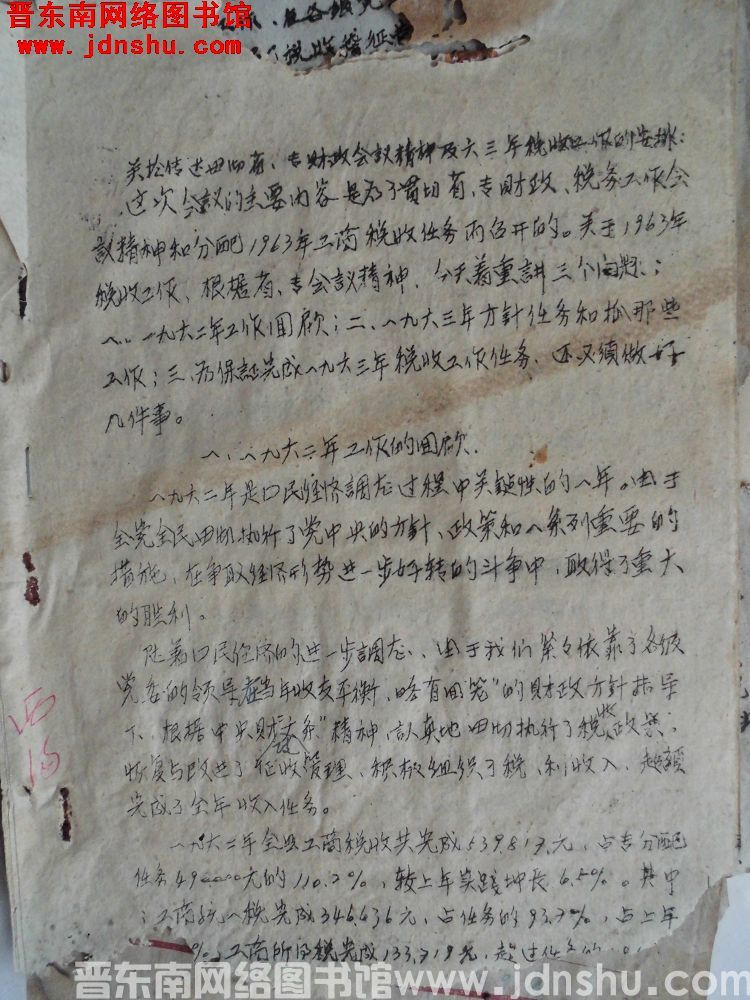 晋东南网络图书馆
www.jdnshu.com
关于传达贯彻省、专财政会议精神及六三年税收工作的安排：
这次会议的主要内容是为了贯切省、专财政、税务工作会
議精神和分配1963年工商税收任务而召开的。关于1963年
税收工作、根据省、专会議精神、今天着重讲三个问题：
一、一九六二年工作回顾；二、一九六三年方針任务和抓那些
工作；三、为保証完成一九六三年税收工作任务、还必須做好
几件事。
一、一九六二年工作的回顾.
一九六二年是口民经济調整过程中关鍵性的一年。由于
全党全民贯彻执行了党中央的方針、政策和一系列重要的
措施，在争取经济形势进一步好转的斗争中，取得了重大
的胜利。
随着口民经济的进一步調整、由于我们紧紧依靠了各级
党委的领导，在"当年收支平衡、略有回笼"的财政方針指导
下、根据中央财 精神，认真地贯彻执行了税收政策，
恢复与改进了征收管理、积极组织了税、利收入、超额
完成了全年收入任务。
一九六二年全县工商税收共完成539.813元，占专分配
任务490000元的110.2%，较上年实绩增长6.5%。其中
：工商统一税完成346.636元，占任务的93.7%，占上年
%；工商所得税完成133.719元，超过任务的
晋东南网络图书馆www.jdnshu.com